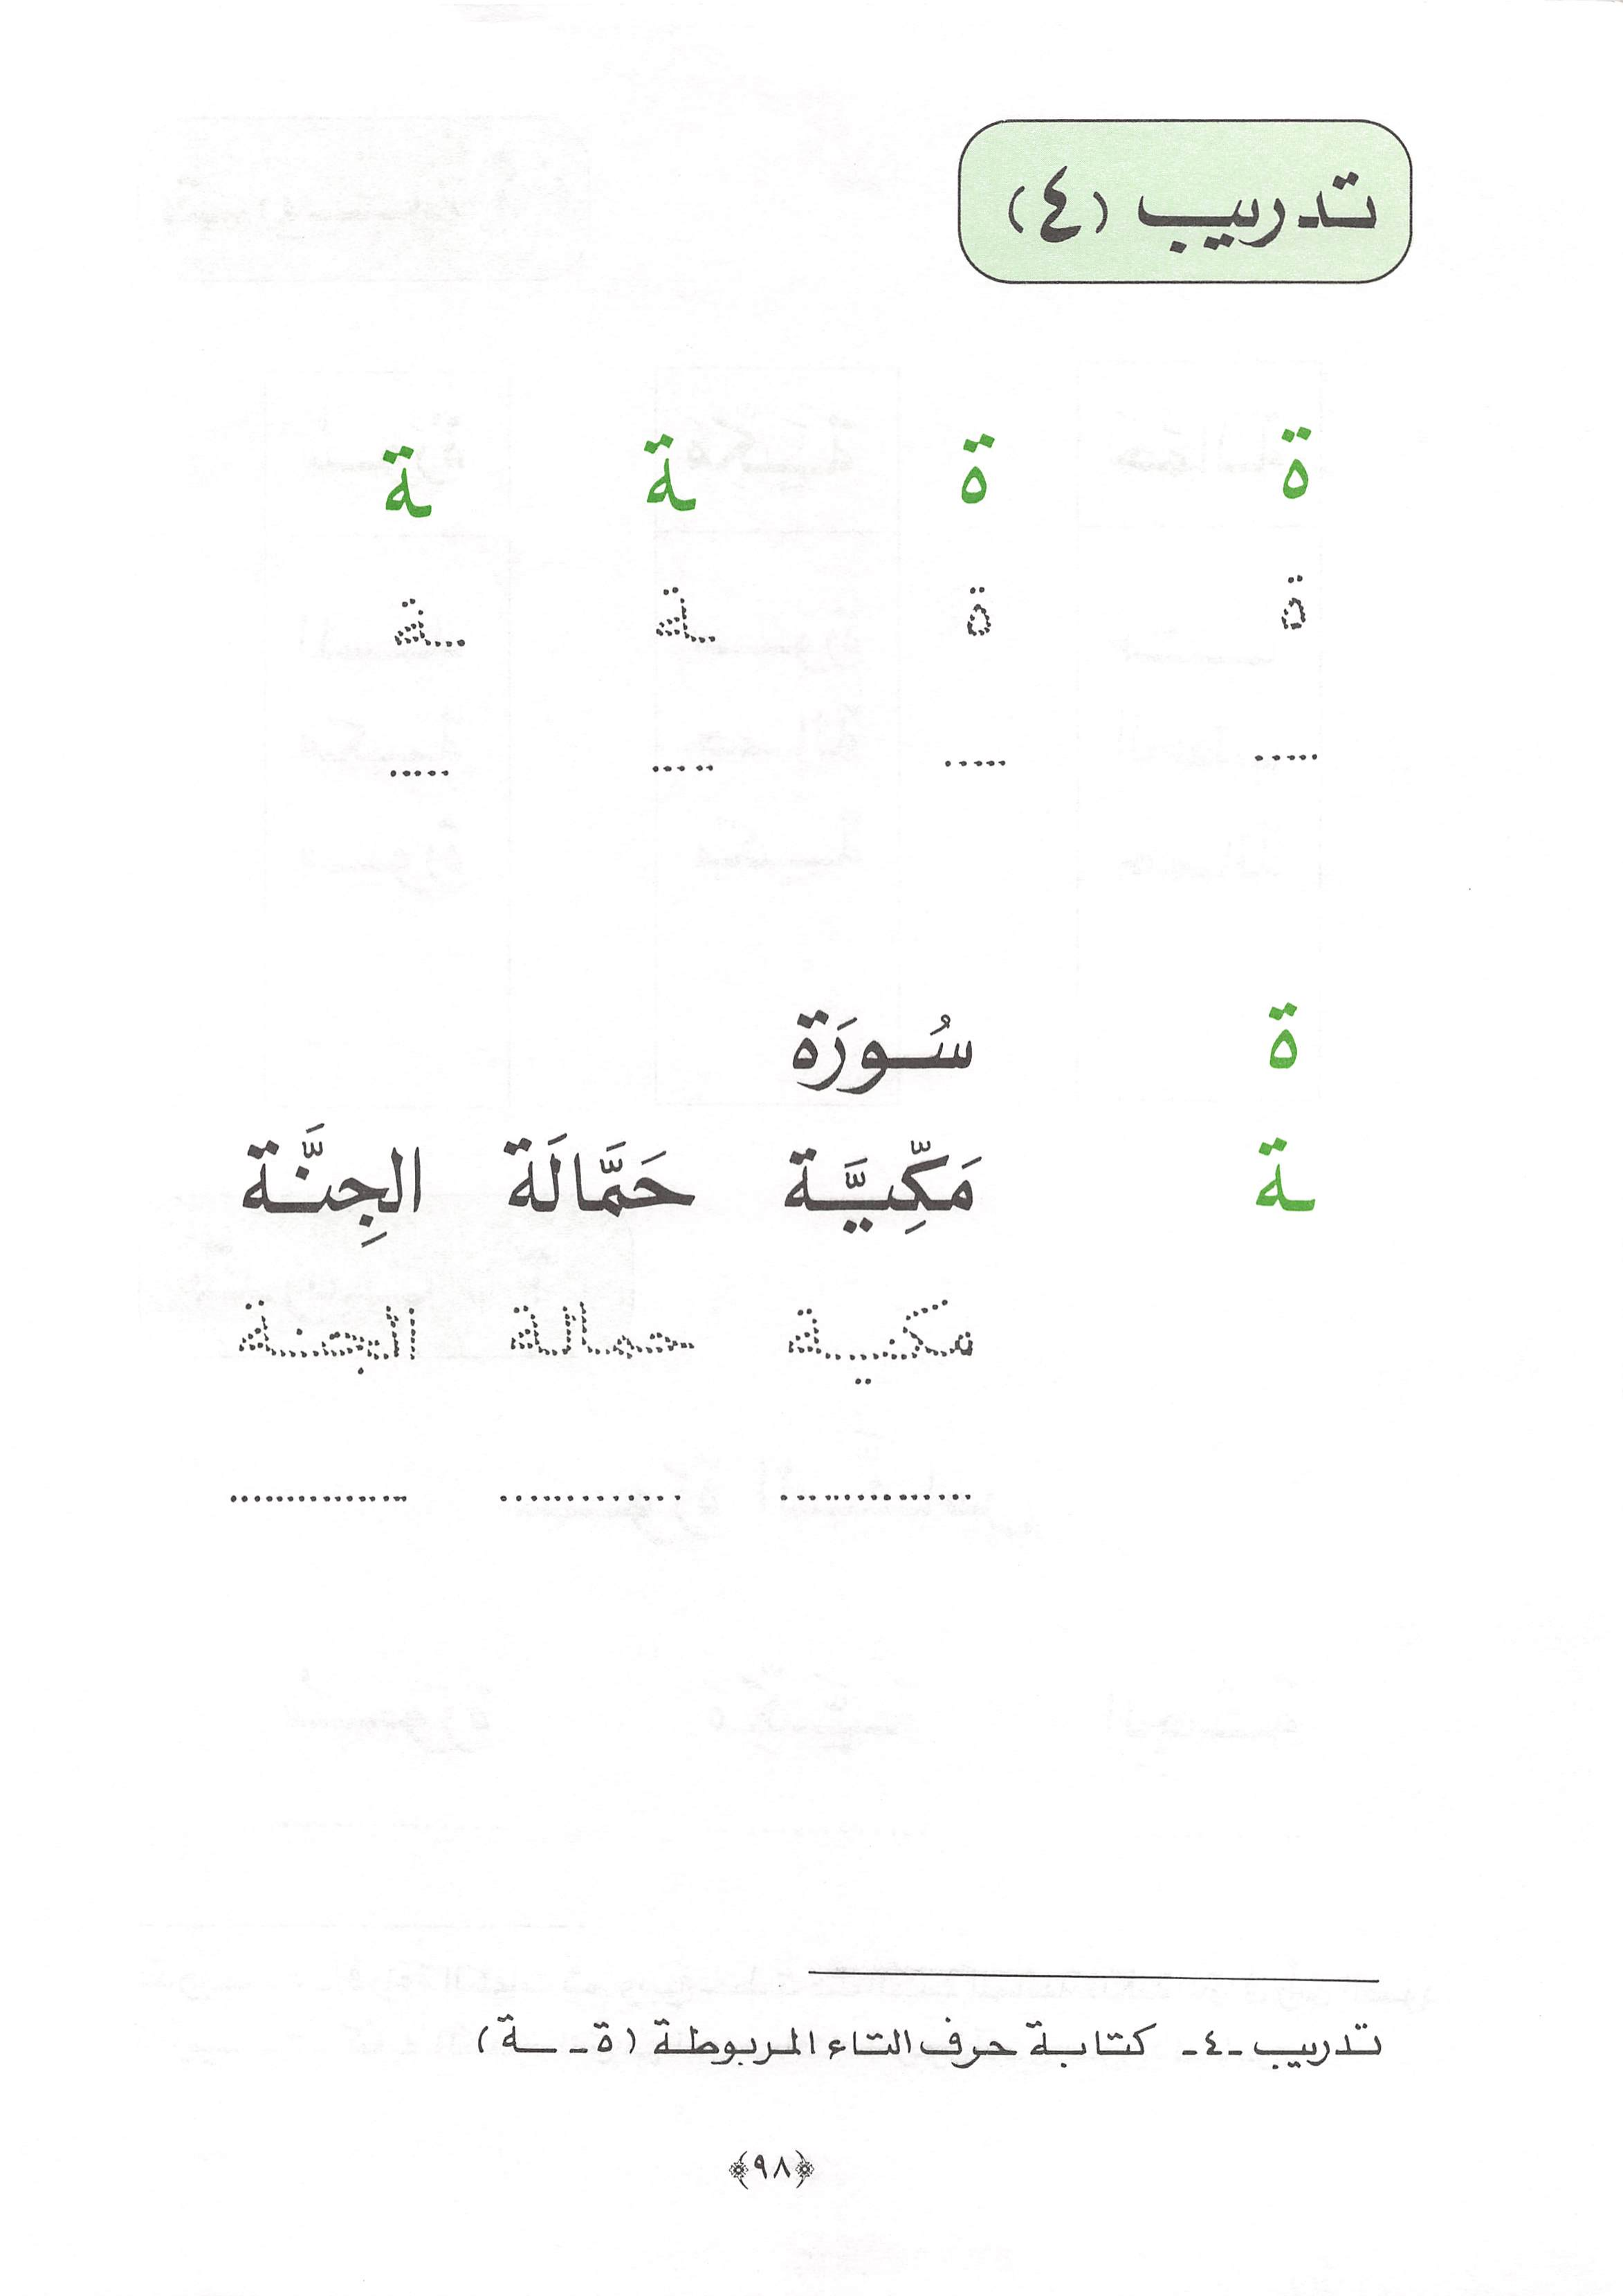 تدريب (٤)
ة ة ـة ـة
ة ة ـة ـة
..... ..... ..... .....
ة سُـورَة
ـة مَكِّيَّـة حَمَّالَة الجِنَّـة
مكيـة حمالة الجنـة
.............. ............. ..............
تدريب -٤- كتابة حرف التاء المربوطة (ة - ـة)
﴿٩٨﴾